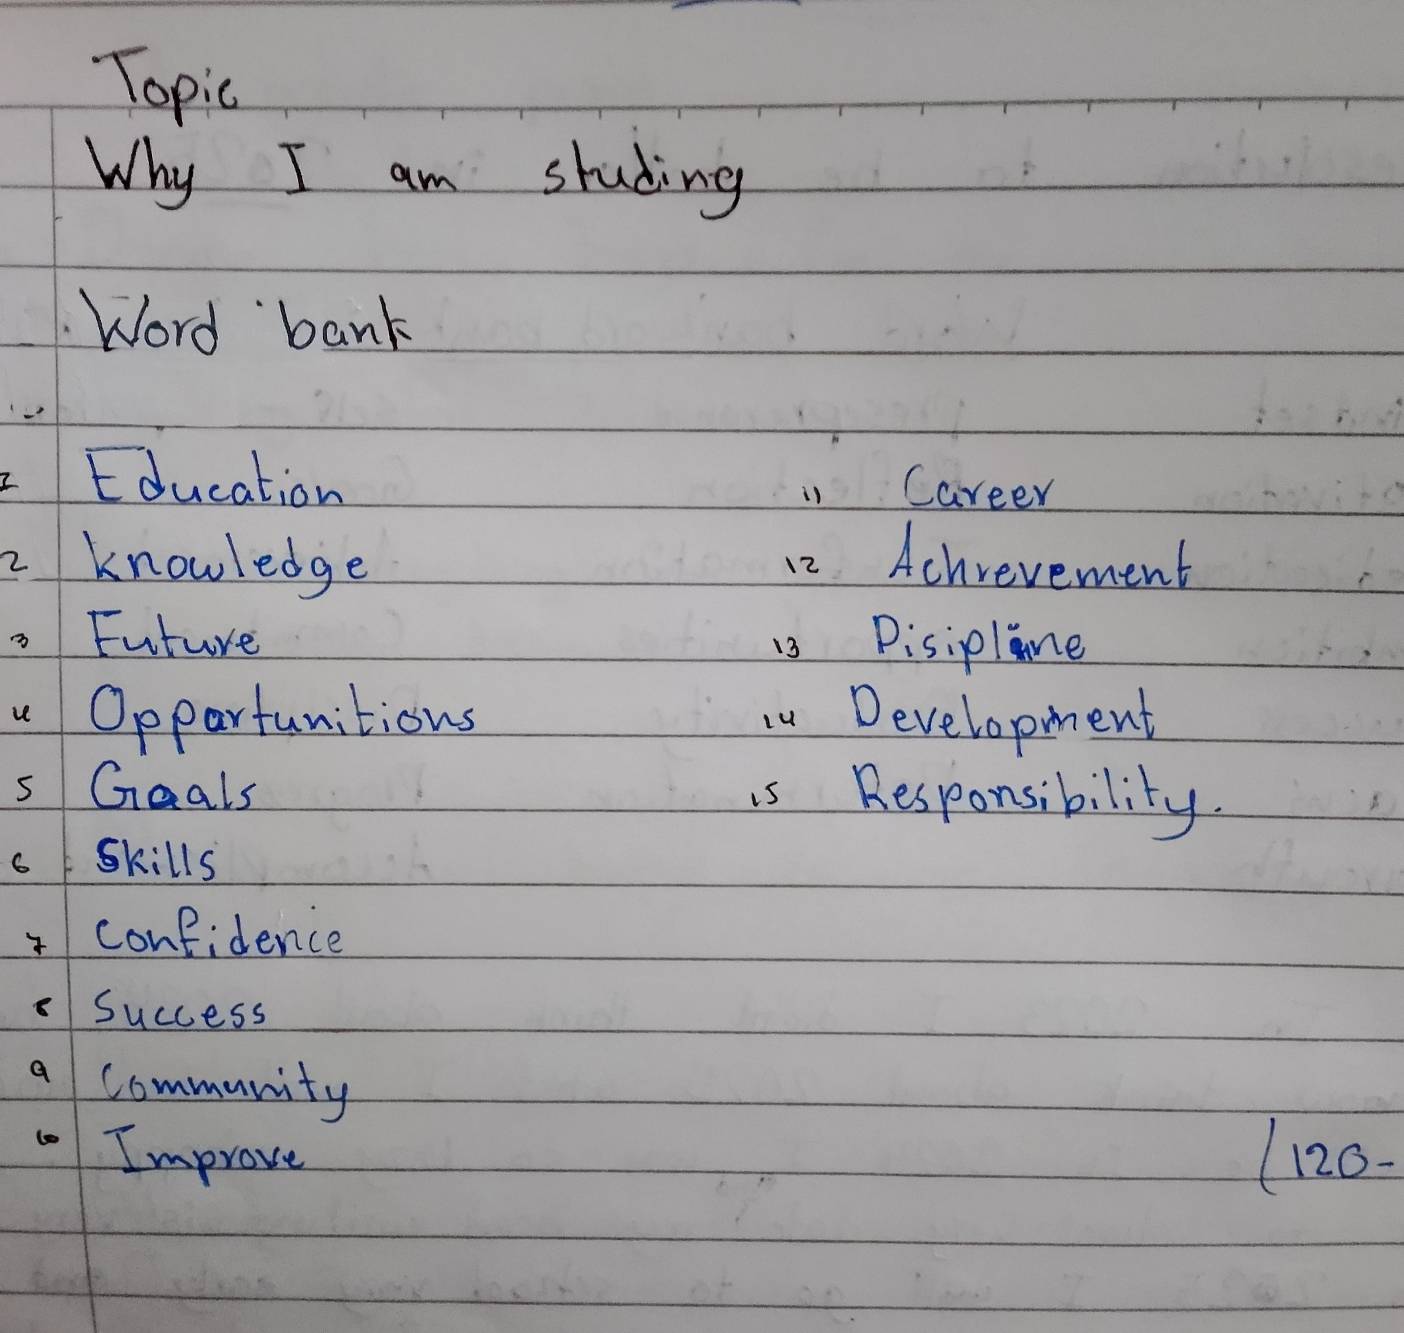 Topic
Why I am studing
Word bank
1 Education 11 Career
2 knowledge 12 Achrevement
3 Future 13 Disipline
4 Oppartunitions 14 Development
5 Goals 15 Responsibility.
6 Skills
7 Confidence
8 Success
9 Community
10 Improve
(120-